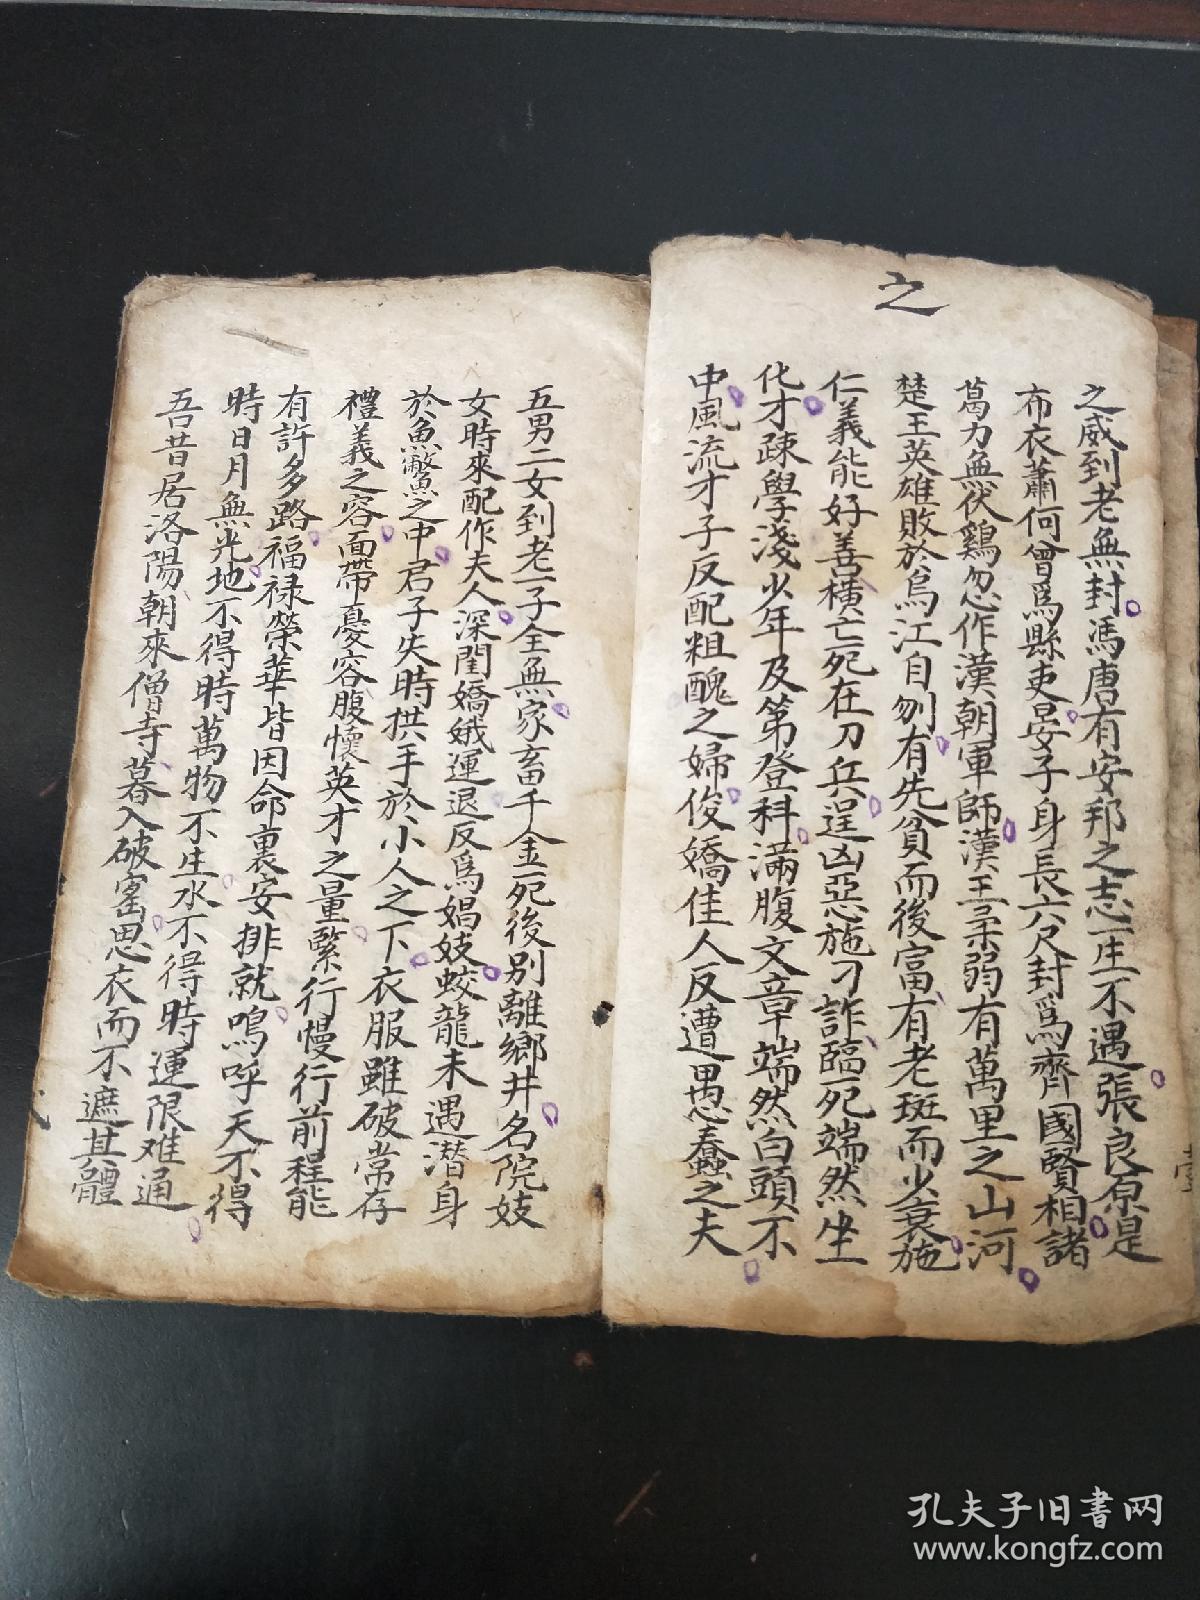 之
之威到老無封馮唐有安邦之志一生不遇張良原是
布衣蕭何曾爲縣吏晏子身長六尺封爲齊國賢相諸
葛力無伏鷄忽作漢朝軍師漢王柔弱有萬里之山河
楚王英雄敗於烏江自刎有先貧而後富有老斑而少衰施
仁義能好善橫亡死在刀兵逞凶惡施刁詐臨死端然坐
化才疎學淺少年及第登科滿腹文章端然白頭不
中風流才子反配粗醜之婦俊嬌佳人反遭愚蠢之夫
五男二女到老一子全無家畜千金死後別離鄉井名院妓
女時來配作夫人深閨嬌娥運退反爲娼妓蛟龍未遇潜身
於魚鱉之中君子失時拱手於小人之下衣服雖破常存
禮義之容面帶憂容腹懷英才之量緊行慢行前程能
有許多路福禄榮華皆因命裏安排就嗚呼天不得
時日月無光地不得時萬物不生水不得時運限难通
吾昔居洛陽朝來僧寺暮入破窰思衣而不遮其體
孔夫子旧书网
www.kongfz.com